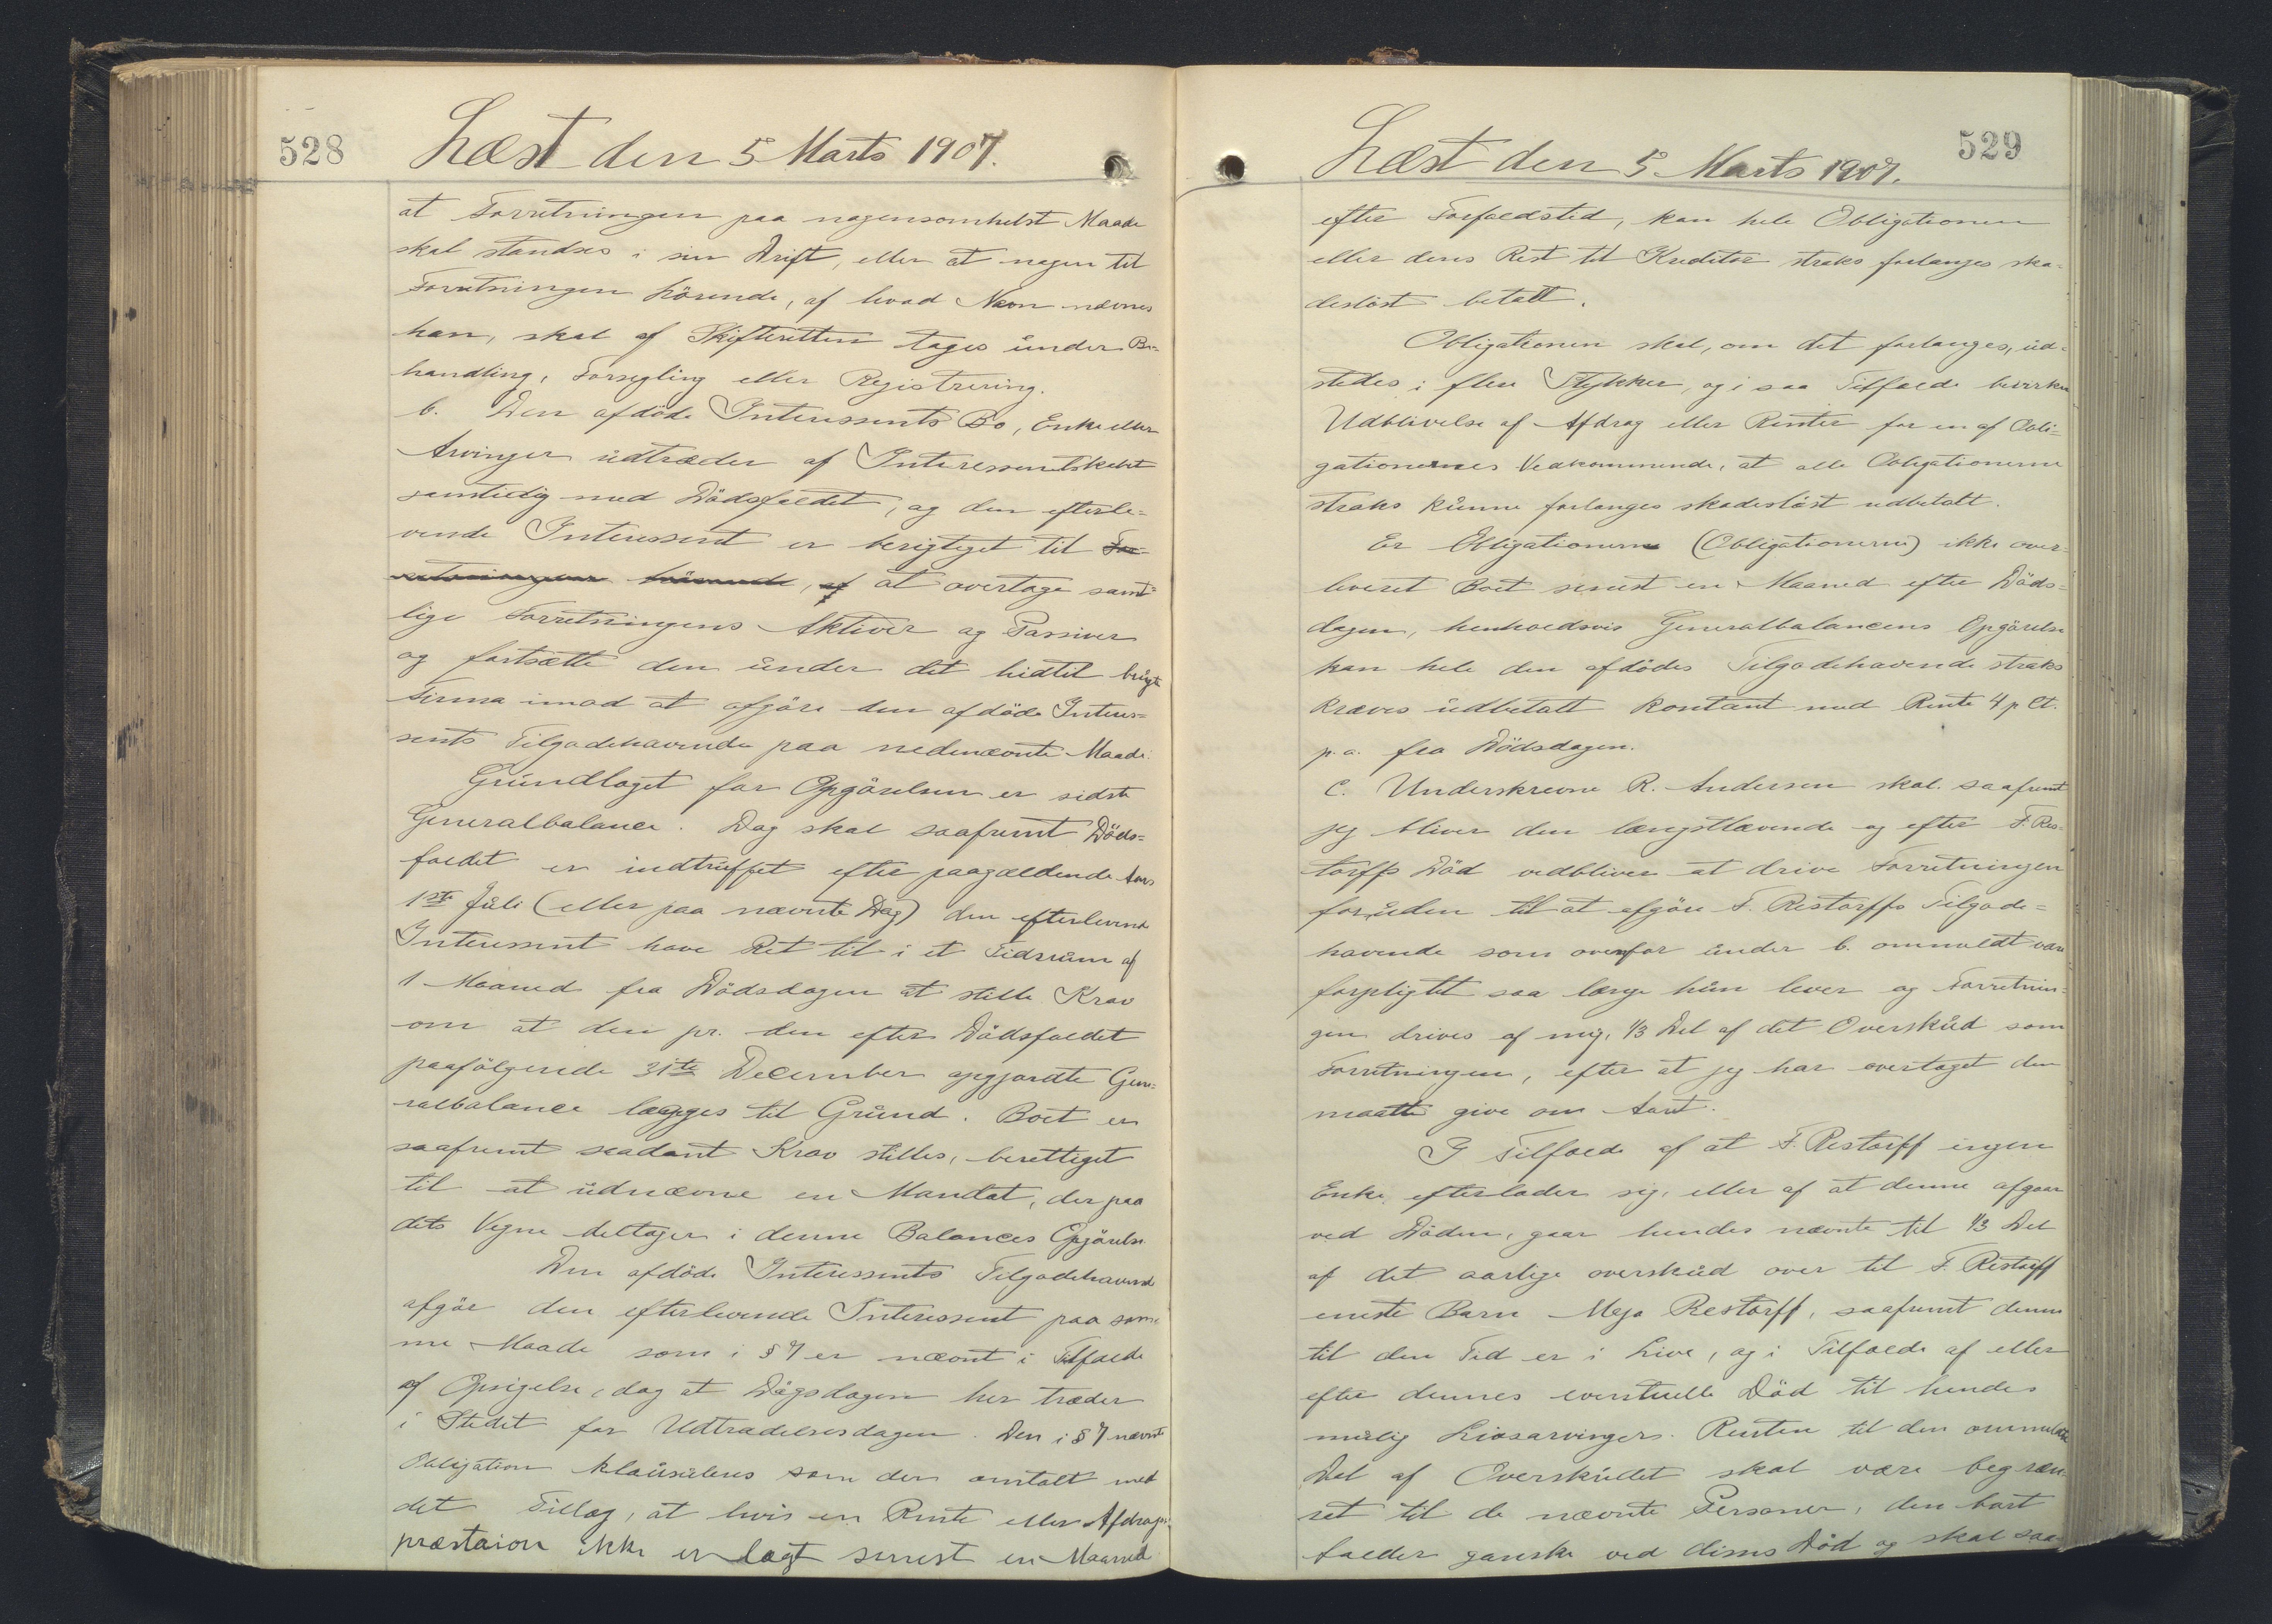 528
Læst den 5 Marts 1907.
at Forretningen paa nogensomhelst Maade
skal standses i sin Drift, eller at nogen til
Forretningen hörende, af hvad Navn nævnes
kan, skal af Skifteretten tages under Be-
handling, Forsegling eller Registrering.
b. Den afdöde Interessents Bo, Enke eller
Arvinger udtræder af Interessentskabet
samtidig med Dödsfaldet, og den efterle-
vende Interessent er berigtiget til For-
retningen hörende, af at overtage samt-
lige Forretningens Aktiver og Passiver
og fortsætte den under det hidtil brugte
Firma imod at afgöre den afdöde Interes-
sents Tilgodehavende paa nedennævnte Maade:
Grundlaget for Opgörelsen er sidste
Generalbalance. Dog skal saafremt Döds-
faldet er indtruffet efter paagældende Aars
1ste Juli (eller paa nævnte Dag) den efterlevende
Interessent have Ret til i et Tidsrum af
1 Maaned fra Dödsdagen at stille Krav
om at den pr. den efter Dödsfaldet
paafölgende 31te December opgjordte Gene-
ralbalance lægges til Grund. Boet er
saafremt saadant Krav stilles, berettiget
til at udnævne en Mandat, der paa
dets Vegne deltager i denne Balances Opgörelse.
Den afdöde Interessents Tilgodehavende
afgör den efterlevende Interessent paa sam-
me Maade som i § 7 er nævnt i Tilfælde
af Opsigelse, dog at Dögsdagen her træder
i Stedet for Udtrædelsesdagen. Den i § 7 nævnte
Obligation klausuleres som der omtalt med
det Tillæg, at hvis en Rente eller Afdrags-
præstaion ikke er lagt senest en Maaned
529
Læst den 5 Marts 1907.
efter Forfaldstid, kan hele Obligationen
eller dens Rest til Kreditor straks forlanges ska-
deslöst betalt.
Obligationen skal, om det forlanges, ud-
stedes i flere Stykker, og i saa Tilfælde bevirker
Udblivelse af Afdrag eller Renter for en af Obli-
gationernes Vedkommende, at alle Obligationerne
straks kunne forlanges skadeslöst udbetalt.
Er Obligationen (Obligationerne) ikke over-
leveret Boet senest en Maaned efter Döds-
dagen, henholdsvis Generalbalancens Opgörelse
kan hele den afdödes Tilgodehavende straks
kræves udbetalt kontant med Rente 4 p Ct.
p.a. fra Dödsdagen.
C. Underskrevne R. Andersen skal saafremt
jeg bliver den længstlævende og efter F. Res-
torffs Död vedbliver at drive Forretningen
foruden til at afgöre F. Restorffs Tilgode-
havende som ovenfor under b. ommeldt være
forpligtet saa længe hun lever og Forretnin-
gen drives af mig, 1/3 Del af det Overskud som
Forretningen, efter at jeg har overtaget den
maatte give om Aaret.
I Tilfælde af at F. Restorff ingen
Enke efterlader sig, eller af at denne afgaar
ved Döden, gaar hendes nævnte til 1/3 Del
af det aarlige overskud over til F. Restorff
eneste Barn Meja Restorff, saafremt denne
til den Tid er i Live, og i Tilfælde af eller
efter dennes eventuelle Död til hendes
mulig Livsarvinger. Renten til den ommeldte
Del af Overskuddet skal være begræn-
set til de nævnte Personer, den bort
falder ganske ved disses Död og skal saa-